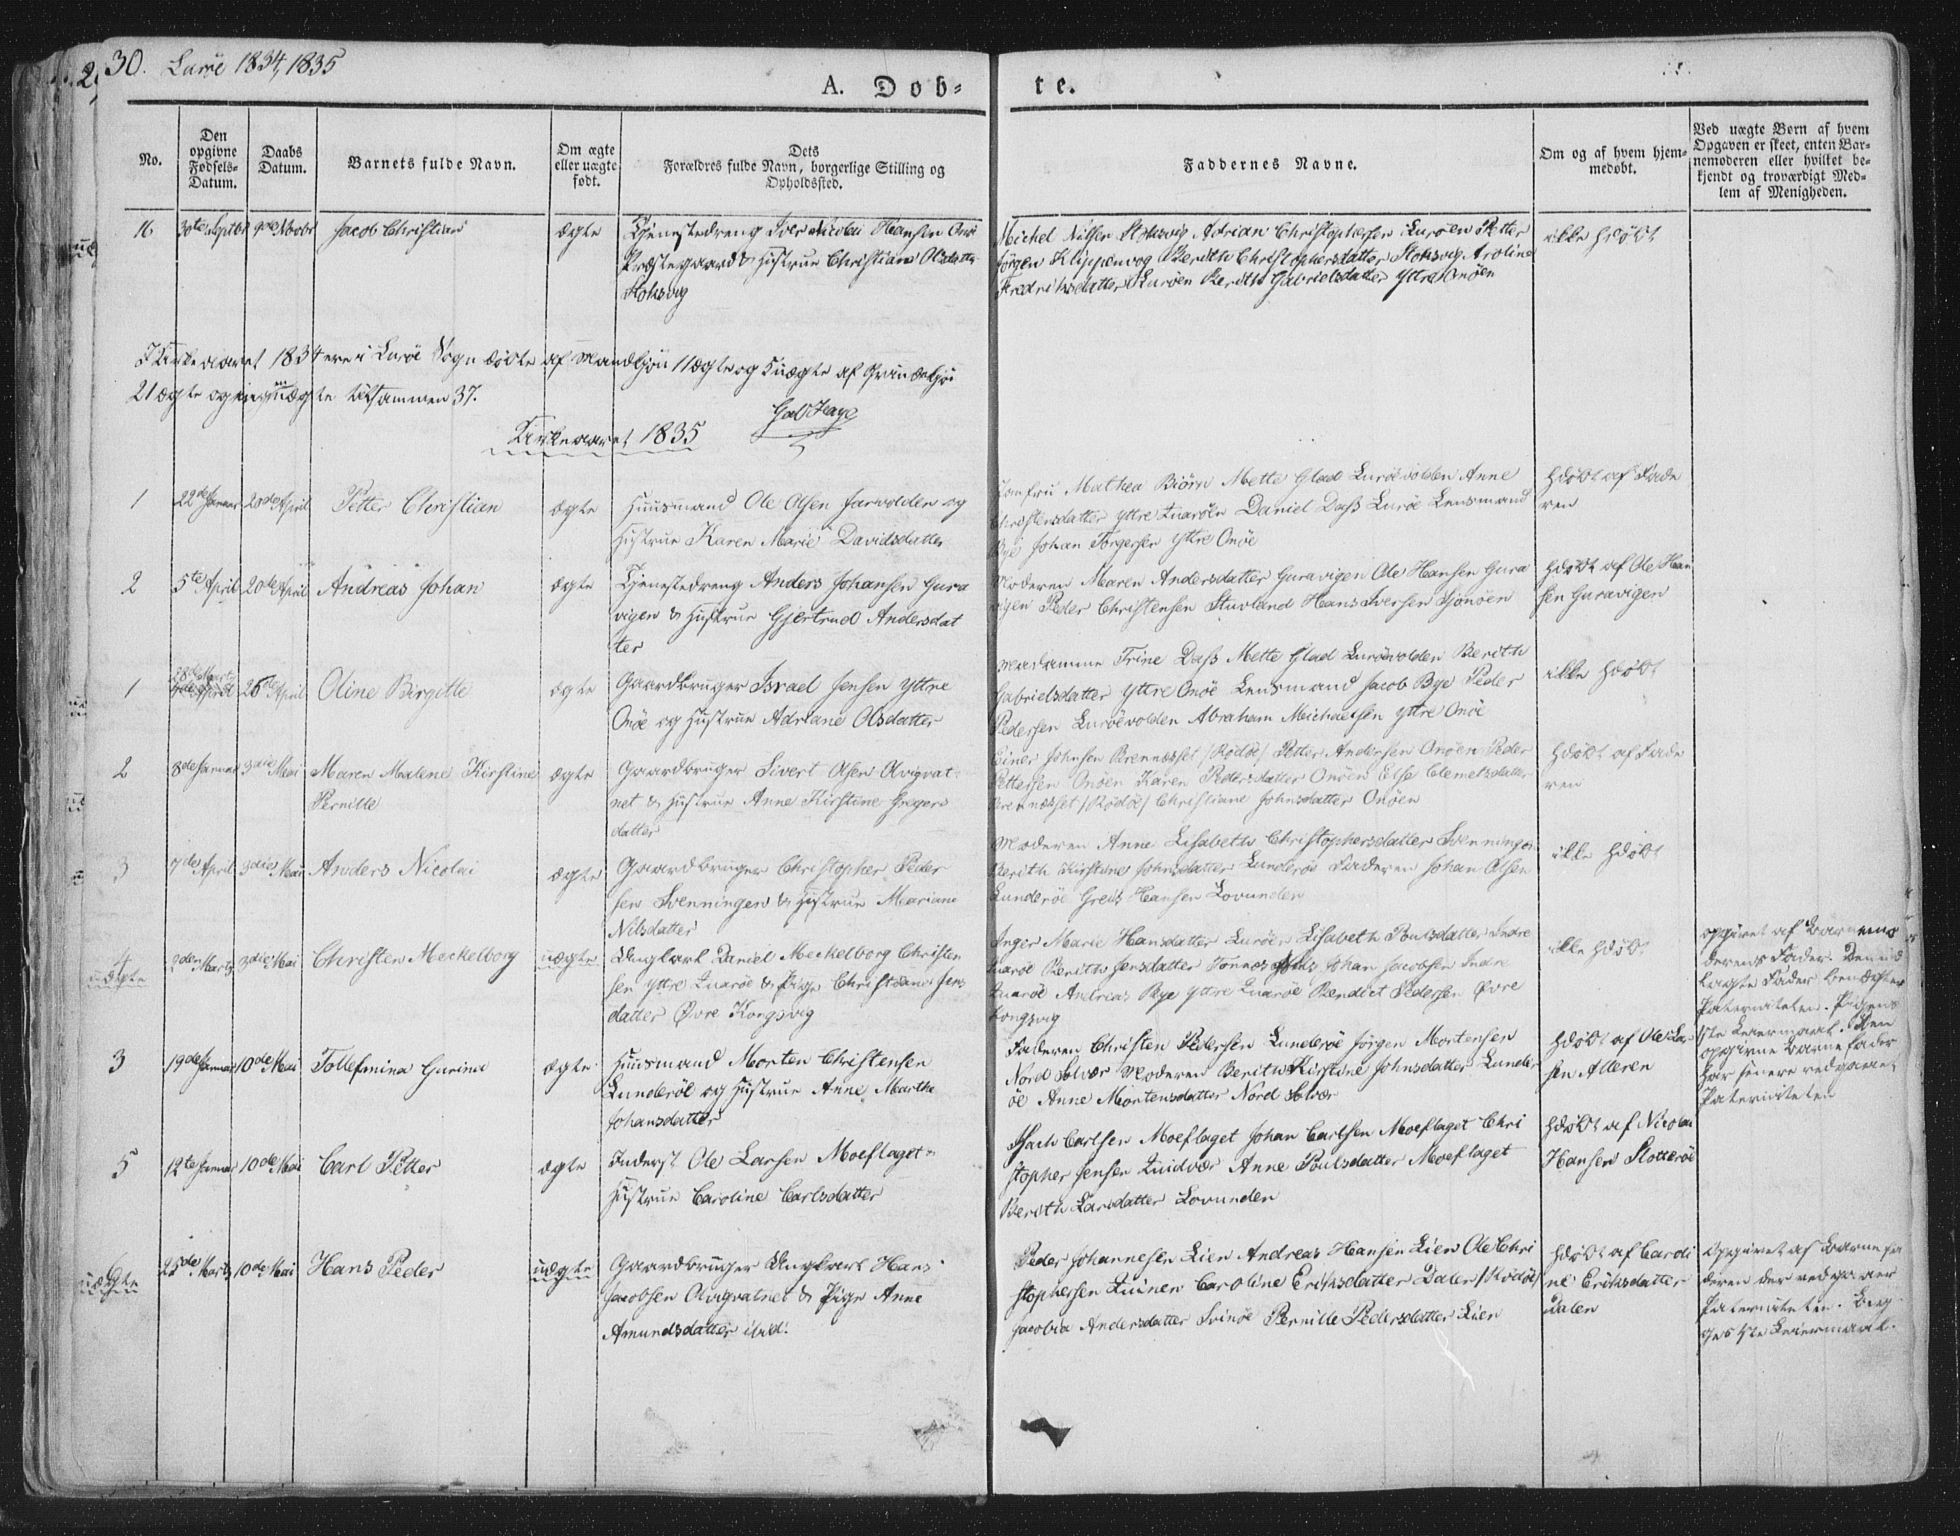 30. Lurøe 1834, 1835
A. Døb- te.
No.
Den opgivne Fødsels-Datum.
Daabs Datum.
Barnets fulde Navn.
Om ægte eller uægte født.
Dets Forældres fulde Navn, borgerlige Stilling og Opholdssted.
Faddernes Navne.
Om og af hvem hjem-medøbt.
Ved uægte Børn af hvem Opgaven er skeet, enten Bar-nemoderen eller hvilket be-kjendt og troværdigt Med-lem af Menigheden.
16 30te Septbr 9de Novbr Jacob Christian ægte
Tjenestedreng Iver Nicolai Hansen Onø
Præstegaard & Hustrue Christiane Olsdatter
Stoksvig
Michel Nilsen Stoksvig Adrian Christophersen Lurøen Petter
Jørgen Klippenvog Berith Christophersdatter Stoksvig Aroline
Fredriksdatter Lurøen Berith Gabrielsdatter Yttre Onøen
ikke hdøbt
I Kirkeaaret 1834 ere i Lurøe Sogn døbte af Mandkjøn 11 ægte og 5 uægte af Qvindekjøn
21 ægte og ingen uægte tilsammen 37.
Kirkeaaret 1835
1 22de Januar 20de April Petter Christian ægte
Huusmand Ole Olsen Sarvolden og
Hustrue Karen Marie Davidsdatter
Jomfru Mathea Biørn Mette Glad Lurøevolden Anne
Christensdatter Yttre Qvarøen Daniel Dass Lurøe Lensmand
Bye Johan Torgersen Yttre Onøe
hdøbt af Fade
ren
2 5te April 20de April Andreas Johan ægte
Tjenestedreng Anders Johansen Gura
vigen & Hustrue Gjertrud Andersdat
ter
Moderen Maren Andersdatter Guravigen Ole Hansen Gura
vigen Peder Christensen Stuvland Hans Iversen Sjonøen
hdøbt af Ole Han
sen Guravigen
1 28de Marts 26de April Oline Birgitte ægte
Gaardbruger Israel Jensen Yttre
Onøe og Hustrue Adriane Olsdatter
Madamme Trine Dass Mette Glad Lurøevolden Berith
Gabrielsdatter Yttre Onøe Lensmand Jacob Bye Peder
Pedersen Lurøevolden Abraham Michaelsen Yttre Onøe
ikke hdøbt
2 8de Januar 3die Mai Maren Malene Kirstine
Pernille
ægte
Gaardbruger Sivert Olsen Olvigvat-
net & Hustrue Anne Kirstine Gregers
datter
Einer Johnsen Brennesset /Rødøe/ Petter Andersen Onøen Peder
Pettersen Onøen Karen Pedersdatter Onøen Else Clemetsdatter
Brennesset /Rødøe/ Christiane Johnsdatter Onøen
hdøbt af Fade
ren
3 7de April 3die Mai Anders Nicolai ægte
Gaardbruger Christopher Peder
sen Svenningen & Hustrue Mariane
Nilsdatter
Moderen Anne Lisabeth Christophersdatter Svenningen
Berith Kirstine Johnsdatter Lunderøe Faderen Johan Olsen
Lunderøe Greis Hansen Lovunden
ikke hdøbt
4 uægte 2den Marts 3die Mai Christen Meckelborg uægte
Ungkarl Daniel Meckelborg Christen
sen Yttre Qvarøe & Pige Christiane Jens
datter Øvre Kongsvig
Inger Marie Hansdatter Lurøen Lisabeth Poulsdatter Indre
Qvarøe Berith Jensdatter Tonnes Johan Jacobsen Indre
Qvarøe Andreas Bye Yttre Qvarøe Bendict Pedersen Øvre
Kongsvig
ikke hdøbt
opgivet af Barnemo
derens Fader. Den ud
lagte Fader benægter
Paterniteten. Pigens
1ste Leiermaal. Den
opgivne Barnefader
har senere vedgaaet
Paterniteten
3 19de Januar 10de Mai Tollefmina Gurina ægte
Huusmand Morten Christensen
Lunderøe og Hustrue Anne Martha
Johansdatter
Faderen Christen Pedersen Lunderøe Jørgen Mortensen
Nord Solvær Moderen Berith Kirstine Johnsdatter Lunder
øe Anne Mortensdatter Nord Solvær
hdøbt af Ole Lar
sen Alteren
5 12te Januar 10de Mai Carl Petter ægte
Inderst Ole Larsen Moeflaget
Hustrue Caroline Carlsdatter
Isach Carlsen Moeflaget Johan Carlsen Moeflaget Chri
stopher Jensen Qvidvær Anne Poulsdatter Moeflaget
Berith Larsdatter Lovunden
hdøbt af Nicolai
Hansen Slotterøe
6 uægte 25de Marts 10de Mai Hans Peder uægte
Gaardbruger Ungkarl Hans
Jacobsen Olvigvatnet & Pige Anne
Amundsdatter ibid:
Peder Johannesen Lien Andreas Hansen Lien Ole Chri
stophersen Qvinen Caroline Eriksdatter Dalen /Rødøe/
Jacobia Andersdatter Svinøe Pernille Pedersdatter Lien
hdøbt af Cardi
ne Eriksdatter
Dalen
Opgivet af Barnefa
deren der vedgaaer
Paterniteten. Beg
ges 1ste Leiermaal.